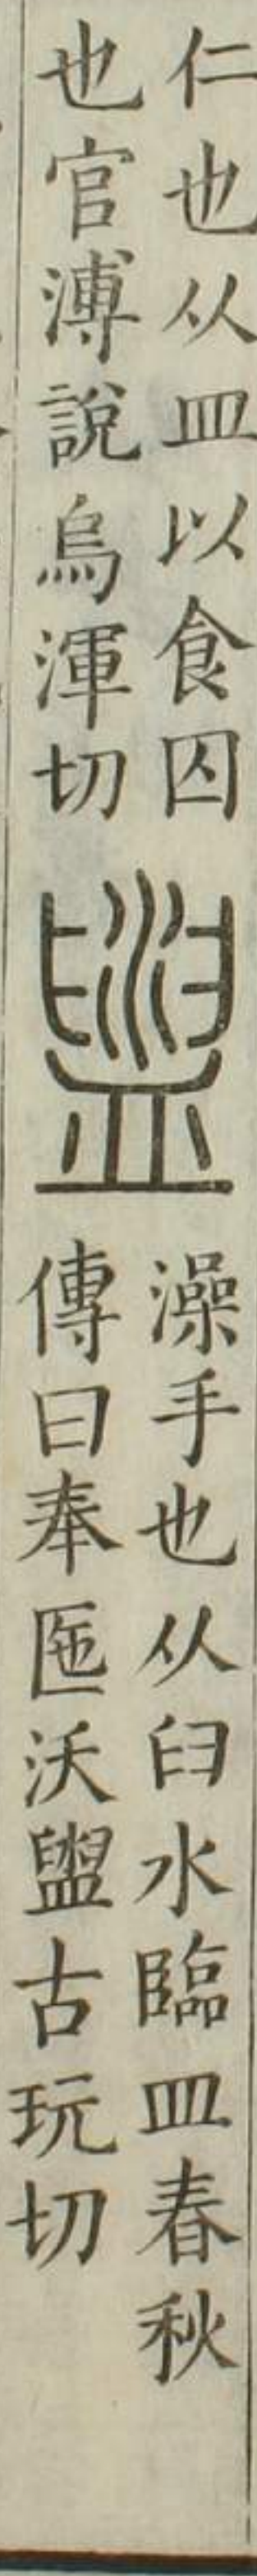 仁也从皿以食囚
也官溥說烏渾切
盥
澡手也从臼水臨皿春秋
傳曰奉匜沃盥古玩切